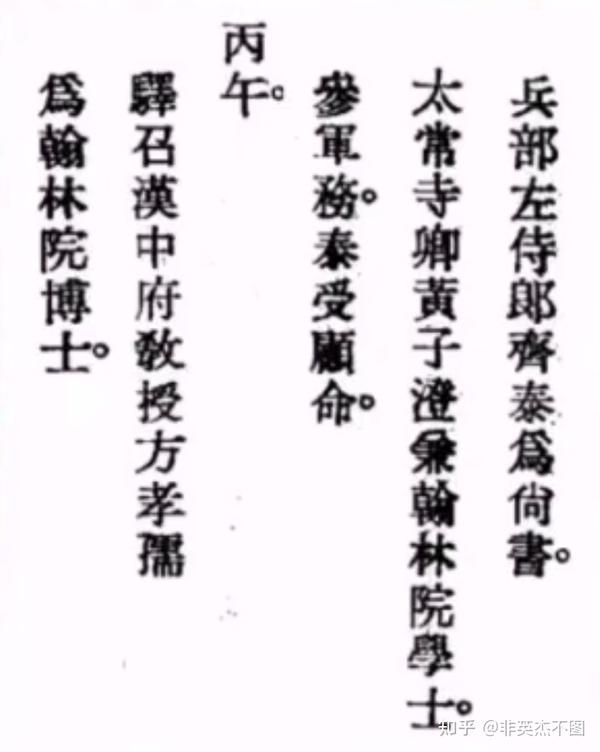 兵部左侍郎齊泰爲尙書。
太常寺卿黃子澄兼翰林院學士。
參軍務。泰受顧命。
丙午。
驛召漢中府敎授方孝孺
爲翰林院博士。
知乎 @非英杰不图